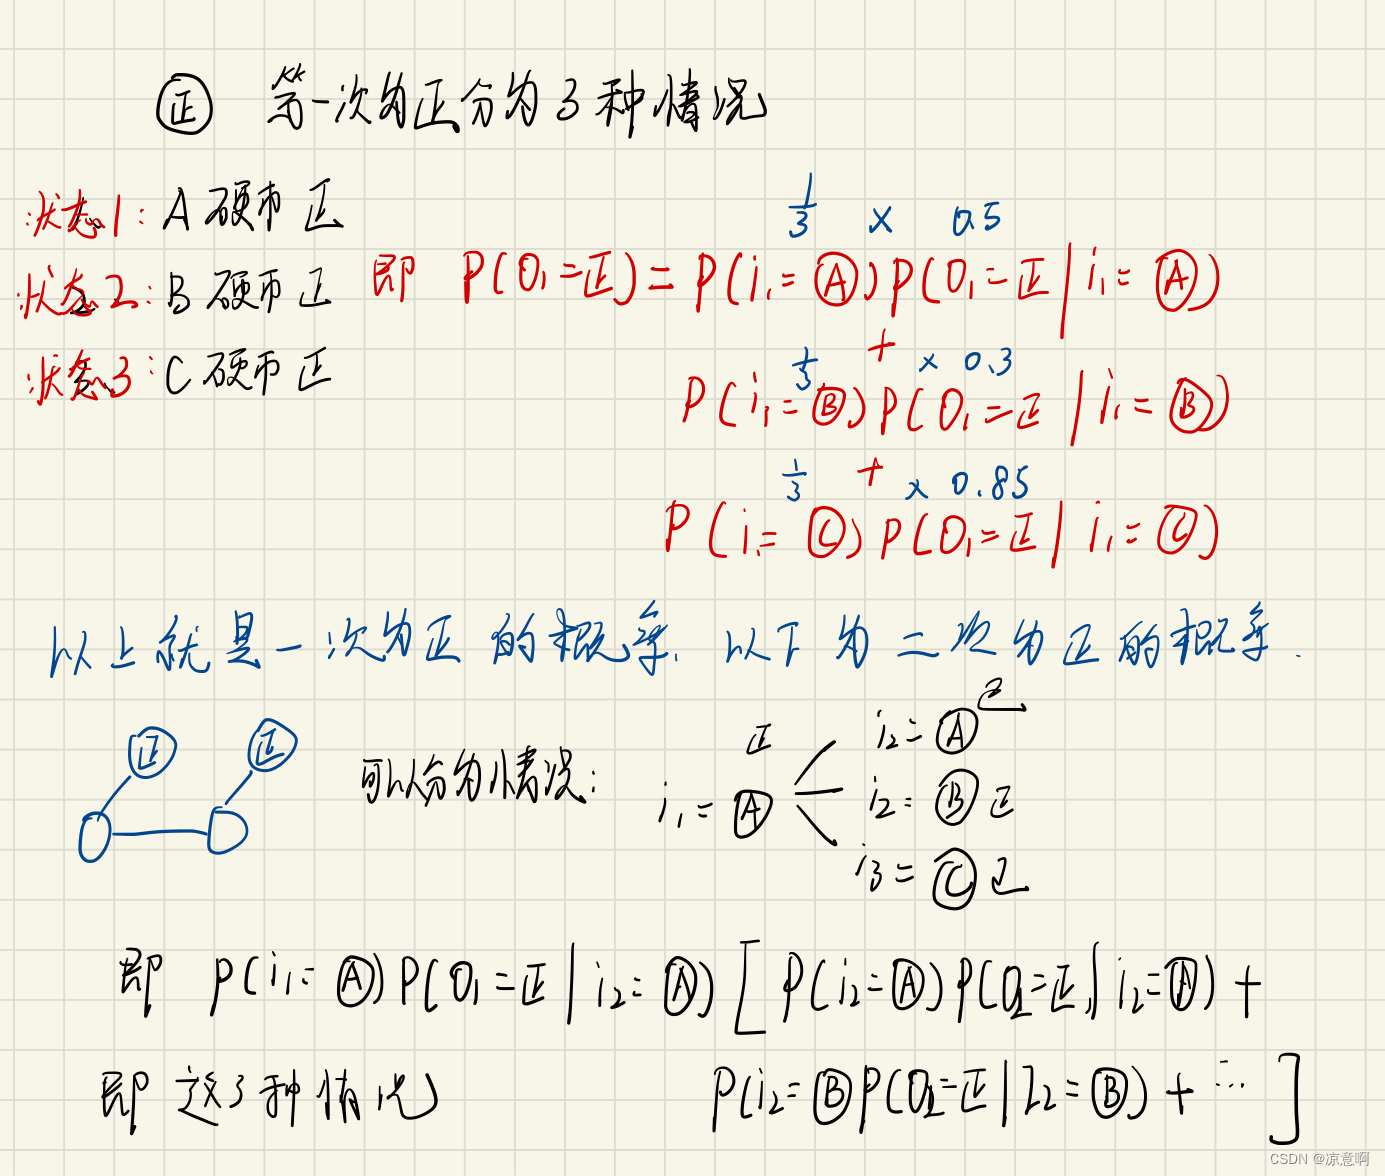 正 第一次为正分为3种情况
状态1: A硬币正
状态2: B硬币正
状态3: C硬币正
1/3 × 0.5
即 P(O₁=正)=P(i₁=Ⓐ)P(O₁=正|i₁=Ⓐ)
+
1/3 × 0.3
P(i₁=Ⓑ)P(O₁=正|i₁=Ⓑ)
+
1/3 × 0.85
P(i₁=Ⓒ)P(O₁=正|i₁=Ⓒ)
以上就是一次为正的概率. 以下为二次为正的概率.
正 正
可以分为情况:
正
i₁=Ⓐ
i₂=Ⓐ正
i₂=Ⓑ正
i₃=Ⓒ正
即 P(i₁=Ⓐ)P(O₁=正|i₂=Ⓐ)[P(i₂=Ⓐ)P(O₂=正|i₂=Ⓐ)+
即这3种情况
P(i₂=ⒷP(O₂=正|I₂=Ⓑ)+…]
CSDN @凉意啊